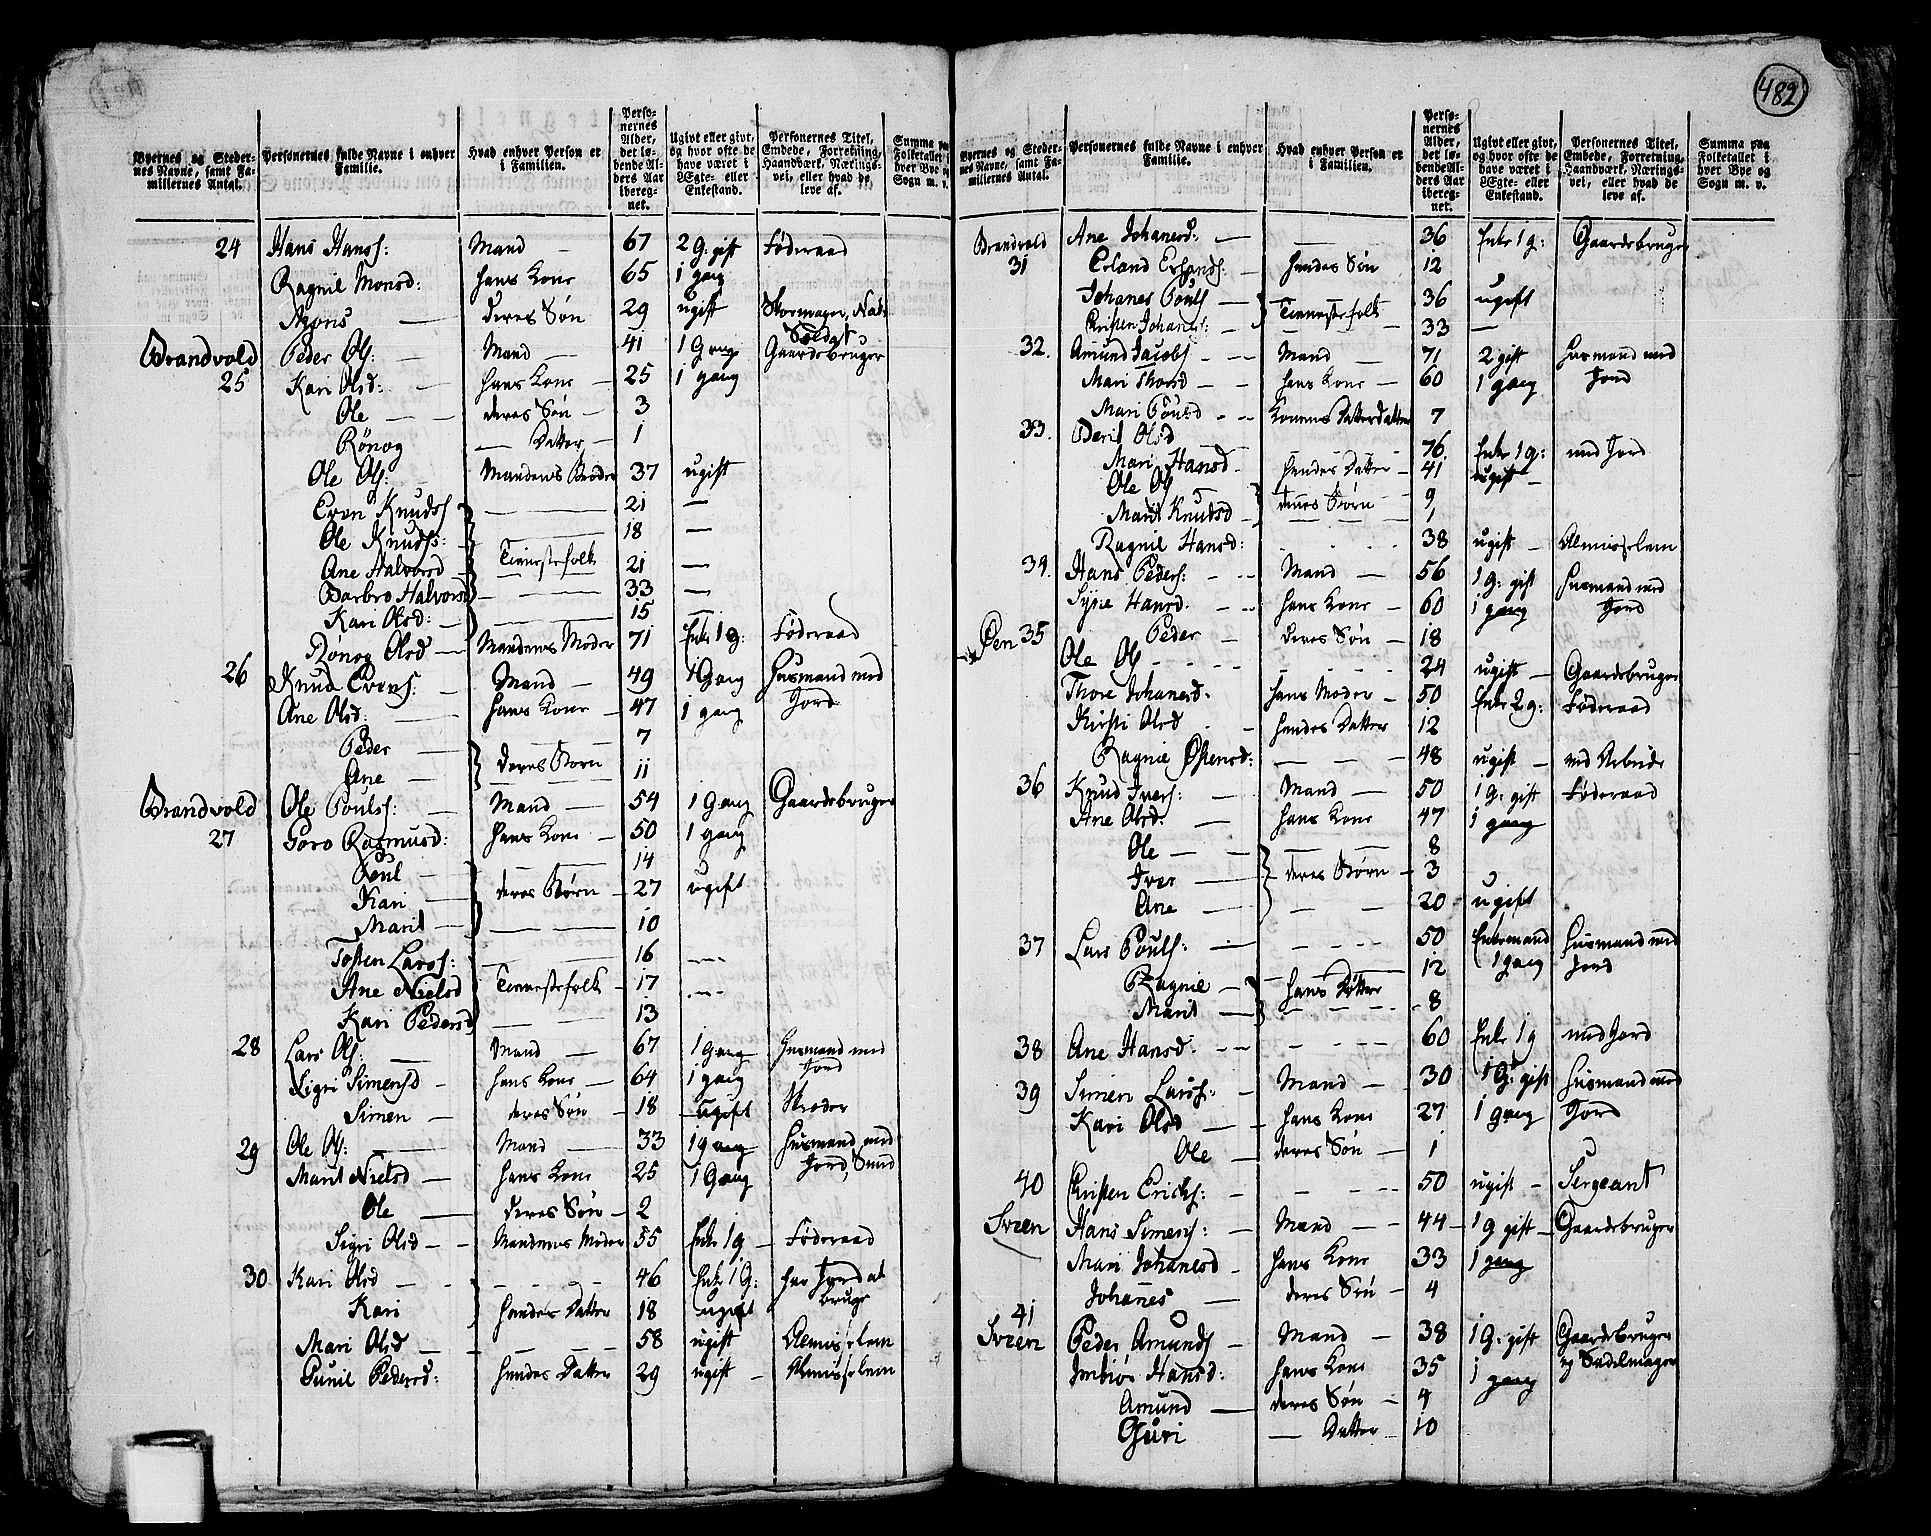 482
Byernes og Steder-
nes Navne, samt Fa-
miliernes Antal.
Personernes fulde Navne i enhver
Familie.
Hvad enhver Person er
i Familien.
Perso-
nernes
Alder,
det lø-
bende Al-
ders Aar
ibereg-
net.
Ugivt eller givt,
og hvor ofte de
have været i
Ægte- eller
Enkestand.
Personernes Titel,
Embede, Forretning,
Haandværk, Nærings-
vei, eller hvad de
leve af.
Summa paa
Folketallet i
hver Bye og
Sogn m. v.
24 Hans Hans: Mand — 67 2 g. gift Føderaad
Ragnil Monsd: hans Kone 65 1 gang
Mons — deres Søn 29 ugift Skomager, Nat:
Soldat
Brandvold Peder Ols: — Mand — 41 1 Gang Gaardebruger
25 Kari Olsd: — hans Kone — 25 1 gang
Ole — deres Søn — 3
Rønog — Datter — 1
Ole Ols: Mandens Broder 37 ugift
Even Knuds — 21 —
Ole Knuds: — 18 —
Ane Halvorsd — Tienestefolk 21 —
Barbro Halvorsd — 33 —
Kari Olsd: — 15 —
Rønog Olsd — Mandens Moder 71 Enke 1 g: Føderaad
26 Knud Evens: — Mand — 49 1 Gang Husmand med
Ane Olsd: — hans Kone — 47 1 gang Jord
Peder — 7
Ane — deres Børn 11
Brandvold Ole Pouls: — Mand — 54 1 Gang Gaardebruger
27 Goro Rasmusd: hans Kone — 50 1 gang
Poul — 14
Kari — deres Børn — 27 ugift
Marit — 10
Tosten Lars: — 16
Ane Nielsd Tienestefolk — 17
Kari Pedersd — 13
28 Lars Ols: — Mand — 67 1 Gang Husmand med
Jord
Sigri Simensd — hans Kone — 64 1 gang
Simen — deres Søn — 18 ugift Skreder
29 Ole Ols: — Mand — 33 1 gang Husmand med
Marit Nielsd — hans Kone 25 1 Gang Jord, Smed
Ole — deres Søn — 2
Sigri Olsd — Mandens Moder 55 Enke 1 g — Føderaad
30 Kari Olsd — 46 Enke 1 G: har Jord at
bruge
Kari hendes Datter 18 ugift
Mari Olsd — 58 ugift Almisselem
Gunil Pedersd: hendes Datter 29 ugift — Almisselem
Byernes og Steder-
nes Navne, samt Fa-
miliernes Antal.
Personernes fulde Navne i enhver
Familie.
Hvad enhver Person er
i Familien.
Perso-
nernes
Alder,
det lø-
bende Al-
ders Aar
ibereg-
net.
Ugivt eller givt,
og hvor ofte de
have været i
Ægte- eller
Enkestand.
Personernes Titel,
Embede, Forretning,
Haandværk, Nærings-
vei, eller hvad de
leve af.
Summa paa
Folketallet i
hver Bye og
Sogn m. v.
Brandvold Ane Johanesd: — 36 Enke 1 g: Gaardebruger
31 Erland Erlands: — hendes Søn 12
Johanes Pouls — Tienestefolk 36 ugift
Christen Johanes: — 33 —
32. Amund Jacobs — Mand — 71 2 gift Husmand med
Mari Thorsd — hans Kone — 60 1 gang Jord
Mari Poulsd — Konens Datterdatter 7
33. Berit Olsd — 76. Enke 1 g: med Jord
Mari Hansd. hendes Datter — 41 ugift —
Ole Ols — deres Børn 9
Marit Knudsd — 1
Ragnil Hansd: 38 ugift — Almisselem
34. Hans Peders: — Mand — 56 1 g: gift Husmand med
Syne Hansd. — hans Kone — 60 1 gang Jord
Peder — deres Søn — 18
Øen 35 Ole Ols — 24 ugift — Gaardebruger
Thore Johanesd. hans Moder — 50 Enke 2 g: Føderaad
Kirsti Olsd — hendes Datter 12
Ragnil Østensd: — 48 ugift — ved Arbeide
36 Knud Ivers: — Mand — 50 1 g: gift Føderaad
Ane Olsd. — hans Kone 47 1 gang
Ole — 8
Iver — deres Børn — 3
Ane — 20 ugift
37 Lars Pouls: — 50 Enkemand Husmand med
1 gang Jord
Ragnil — hans Døttre 12
Marit — 8
38 Ane Hansd. — 60 Enke 1 g med Jord
39 Simen Lars: — Mand — 30 1 G: gift Husmand med
Kari Olsd — hans Kone 27 1 gang Jord
Ole — deres Søn — 1
40 Christen Erichs: — 50 ugift — Sergeant
Sveen Hans Simens: — Mand — 44 — 1 g gift — Gaardebruger
Mari Johanesd — hans Kone 33 1 gang
Johanes — deres Søn — 4
41
Sveen Peder Amunds — Mand — 38 1 G: gift Gaardebruger
og Sadelmager
Imbiør Hansd: hans Kone 35 1 gang
Amund — deres Søn — 4
Guri — Datter — 10